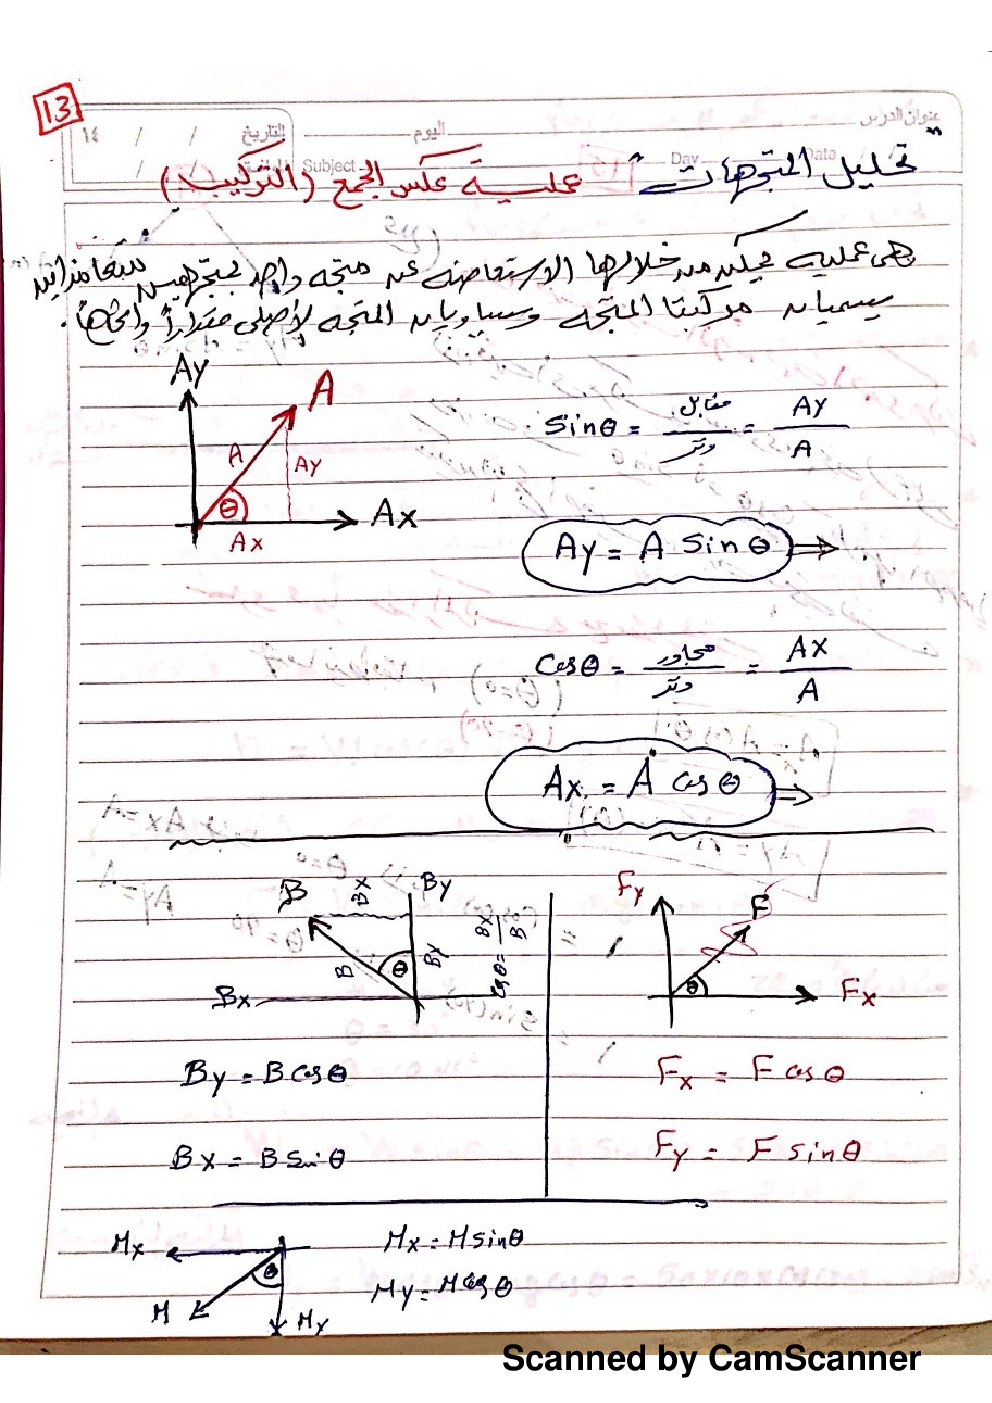 13
عنوان الدرس
اليوم
التاريخ / / ١٤
Subject Day Date
تحليل المتجهات عملية عكس الجمع (التركيب)
هى عملية يمكن من خلالها الاستعاضه عن متجه واحد بمتجهين متعامدين
يسميان مركبتا المتجه ويساويان المتجه الأصلى مقداراً واتجاهاً.
Ay
A
A
Ay
θ
Ax
Ax
Sinθ = مقابل / وتر = Ay / A
Ay = A Sin θ ⇒
Cosθ = مجاور / وتر = Ax / A
Ax = A cos θ ⇒
B
Bx
By
B
θ
By
Bx
Cosθ = Bx / B
By = B cosθ
Bx = B Sin θ
Fy
F
θ
Fx
Fx = F cos θ
Fy = F sin θ
Mx
θ
M
My
Mx = M sinθ
My = M cos θ
Scanned by CamScanner